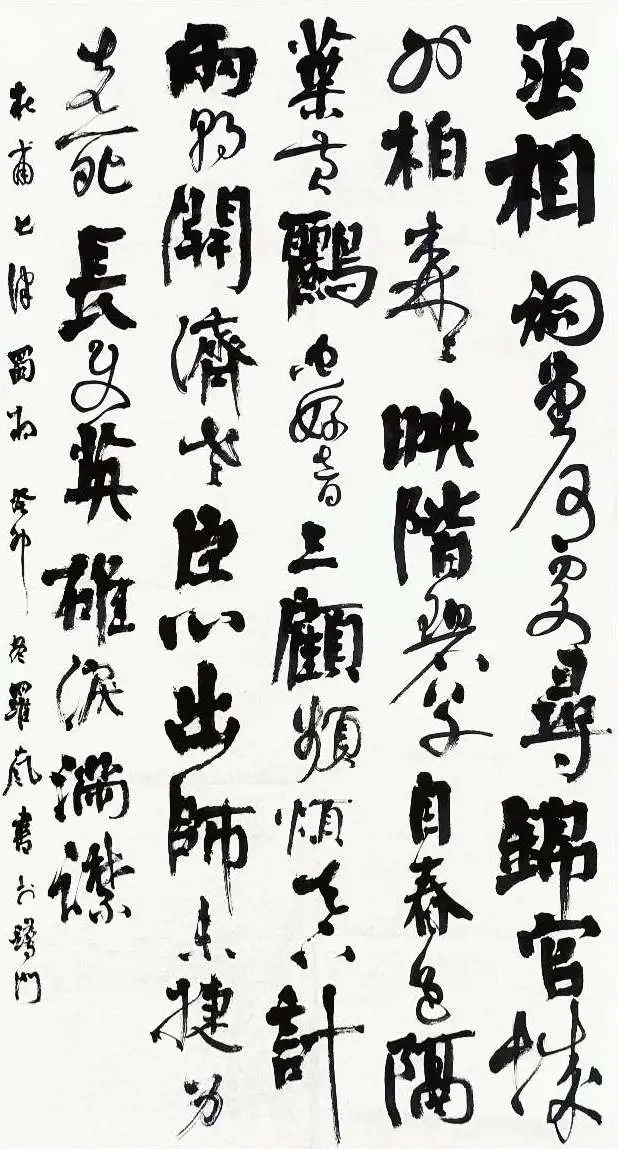 丞相祠堂何處尋錦官城
外柏森々映階碧草自春色隔
葉黃鸝空好音三顧頻煩天下計
兩朝開濟老臣心出師未捷身
先死長使英雄淚滿襟
杜甫七律蜀相 癸卯 羅嵐書於鷺門